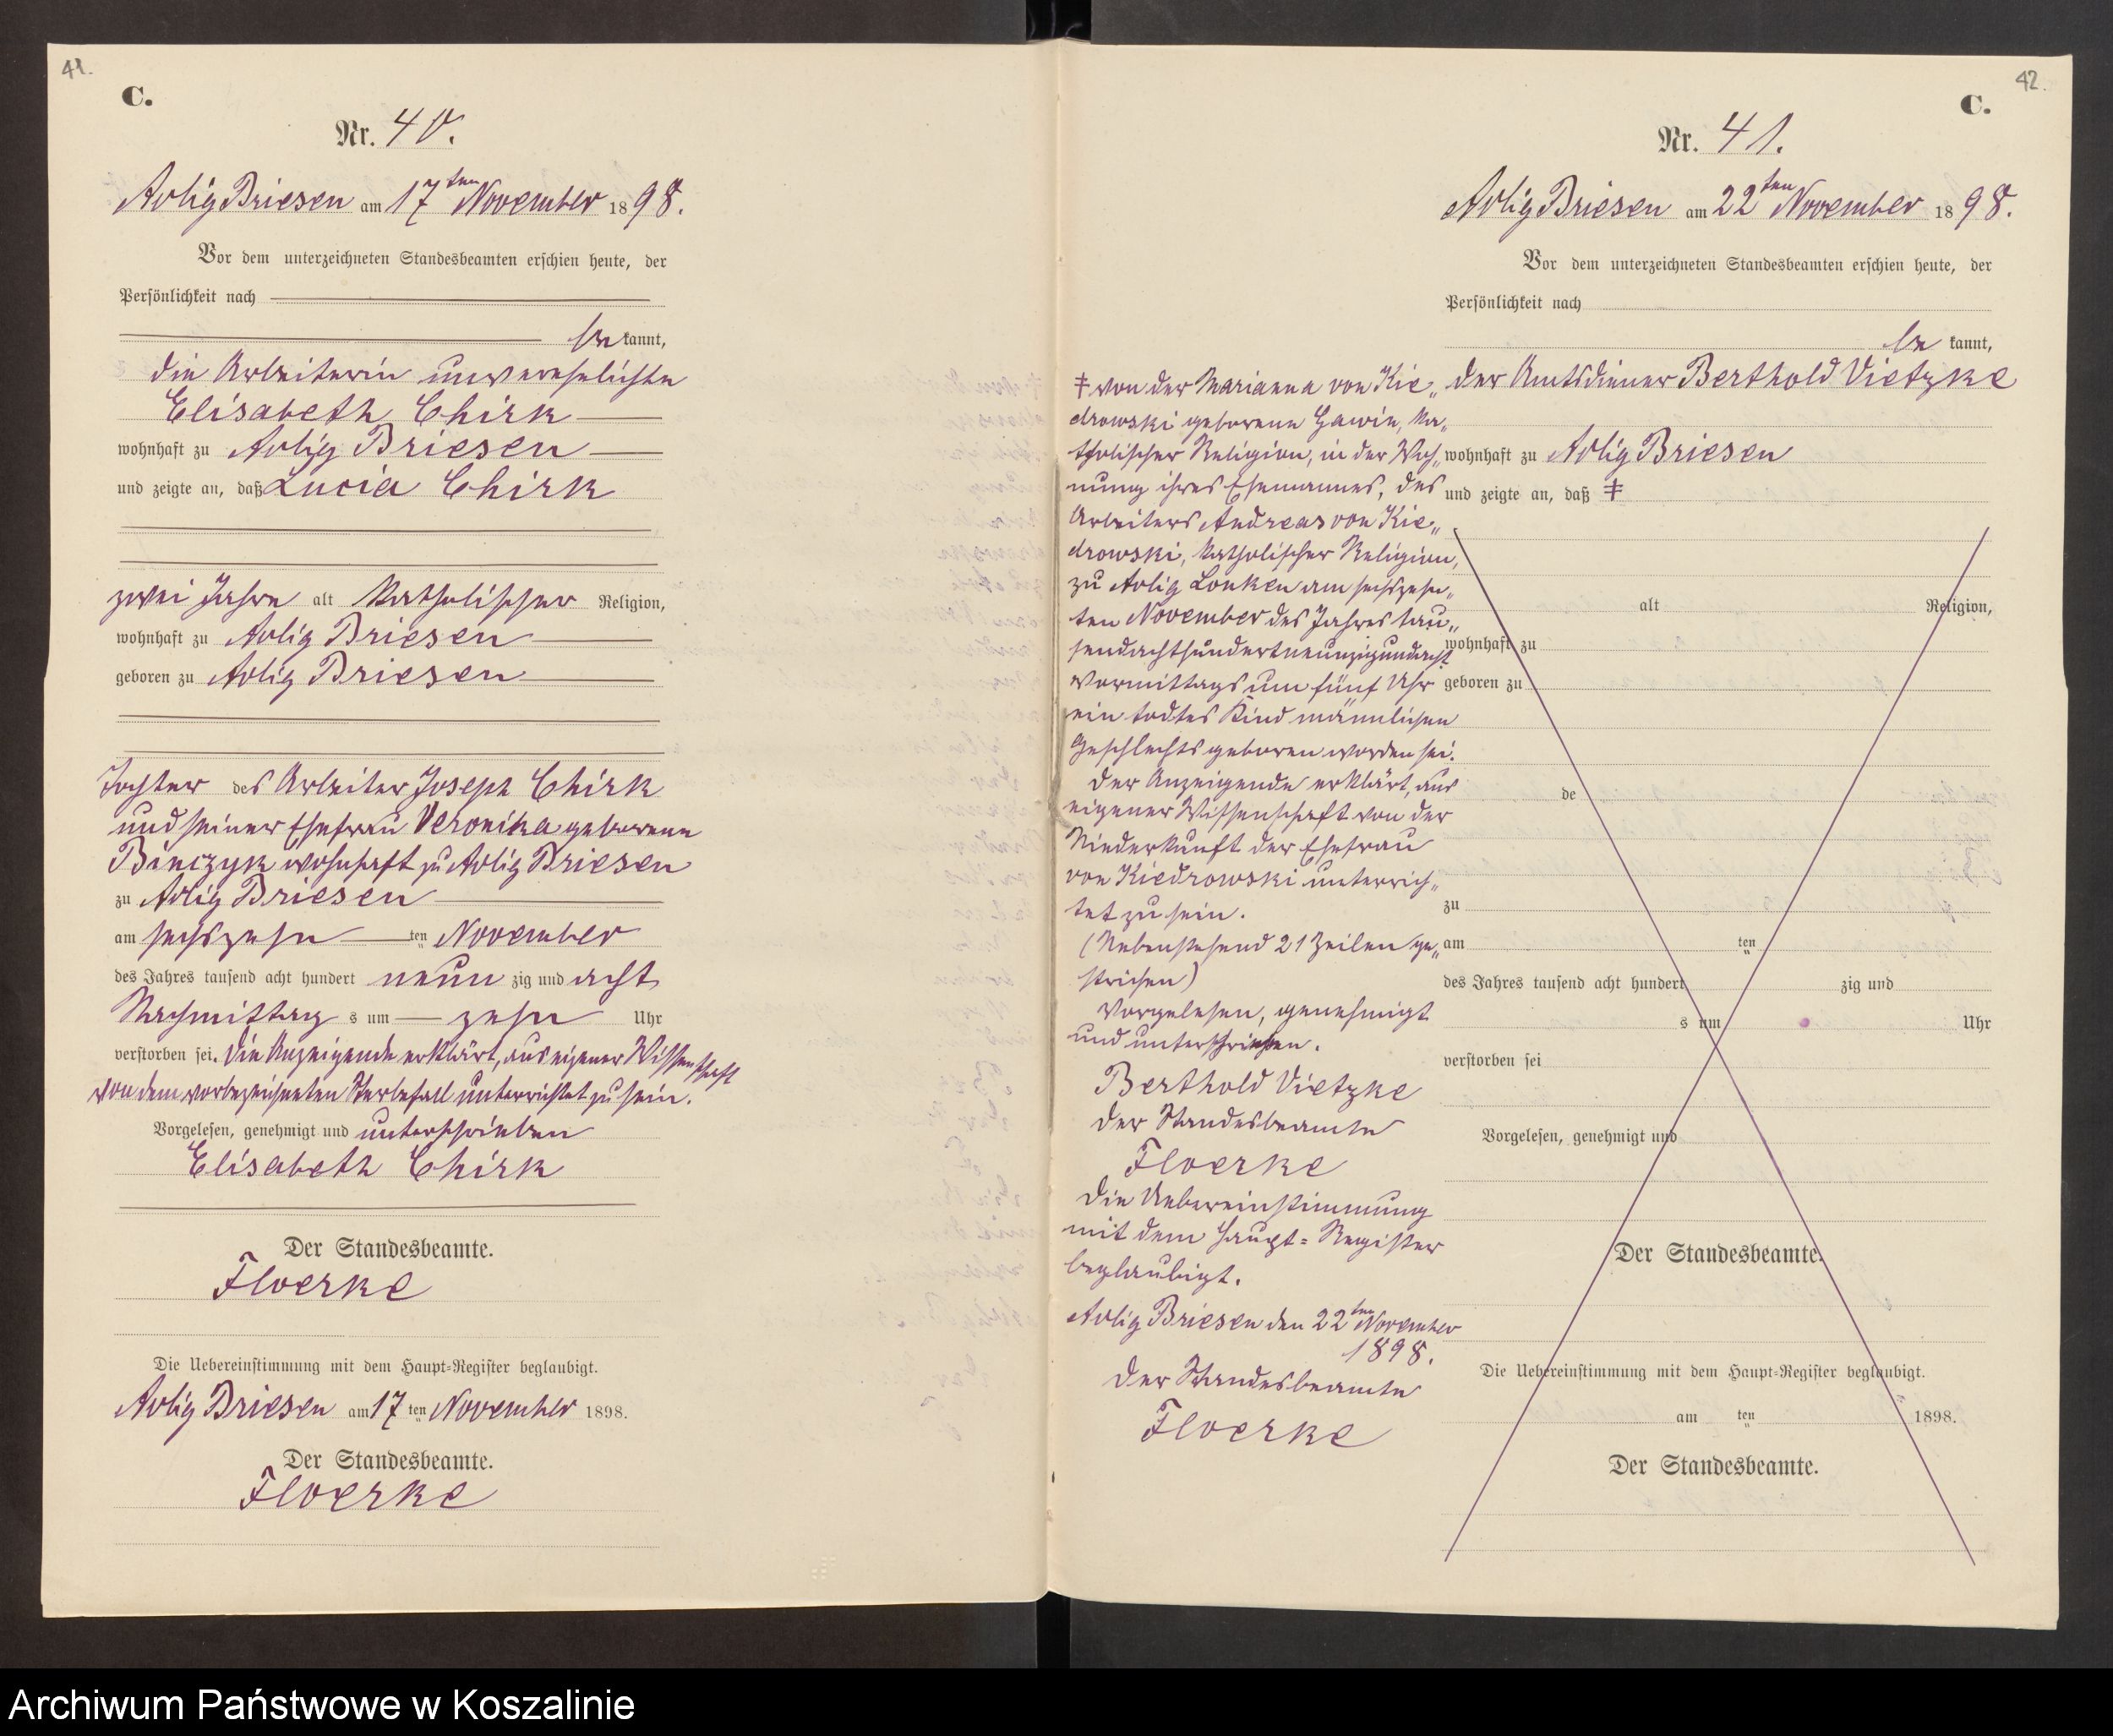 41.
C.
Nr. 40.
Adlig Briesen am 17ten November 1898.
Vor dem unterzeichneten Standesbeamten erschien heute, der
Persönlichkeit nach
be kannt,
die Arbeiterin unverehelichte
Elisabeth Chirk
wohnhaft zu Adlig Briesen
und zeigte an, daß Lucia Chirk
zwei Jahre alt katholischer Religion,
wohnhaft zu Adlig Briesen
geboren zu Adlig Briesen
Tochter des Arbeiter Joseph Chirk
und seiner Ehefrau Veronika geborene
Binczyk wohnhaft zu Adlig Briesen
zu Adlig Briesen
am sechszehn ten November
des Jahres tausend acht hundert neun zig und acht
Nachmittag s um zehn Uhr
verstorben sei. Die Anzeigende erklärt, aus eigener Wissenschaft
von dem vorbezeichneten Sterbefall unterrichtet zu sein.
Vorgelesen, genehmigt und unterschrieben
Elisabeth Chirk
Der Standesbeamte.
Floerke
Die Uebereinstimmung mit dem Haupt-Register beglaubigt.
Adlig Briesen am 17 ten November 1898.
Der Standesbeamte.
Floerke
42.
C.
Nr. 41.
Adlig Briesen am 22ten November 1898.
Vor dem unterzeichneten Standesbeamten erschien heute, der
Persönlichkeit nach
be kannt,
der Amtsdiener Berthold Vietzke
wohnhaft zu Adlig Briesen
und zeigte an, daß ǂ
alt Religion,
wohnhaft zu
geboren zu
de
zu
am ten
des Jahres tausend acht hundert zig und
s um Uhr
verstorben sei
Vorgelesen, genehmigt und
Der Standesbeamte.
Die Uebereinstimmung mit dem Haupt-Register beglaubigt.
am ten 1898.
Der Standesbeamte.
ǂ von der Marianna von Kie„
drowski geborene Gawin, ka„
tholischer Religion, in der Woh„
nung ihres Ehemannes, des
Arbeiters Andreas von Kie„
drowski, katholischer Religion,
zu Adlig Lonken am sechszehn„
ten November des Jahres tau„
sendachthundertneunzigundacht
Vormittags um fünf Uhr
ein todtes Kind männlichen
Geschlechts geboren worden sei.
Der Anzeigende erklärt, aus
eigener Wissenschaft von der
Niederkunft der Ehefrau
von Kiedrowski unterrich„
tet zu sein.
(Nebenstehend 21 Zeilen ge„
strichen)
Vorgelesen, genehmigt
und unterschrieben.
Berthold Vietzke
Der Standesbeamte
Floerke
Die Uebereinstimmung
mit dem Haupt-Register
beglaubigt.
Adlig Briesen den 22ten November
1898.
Der Standesbeamte
Floerke
Archiwum Państwowe w Koszalinie